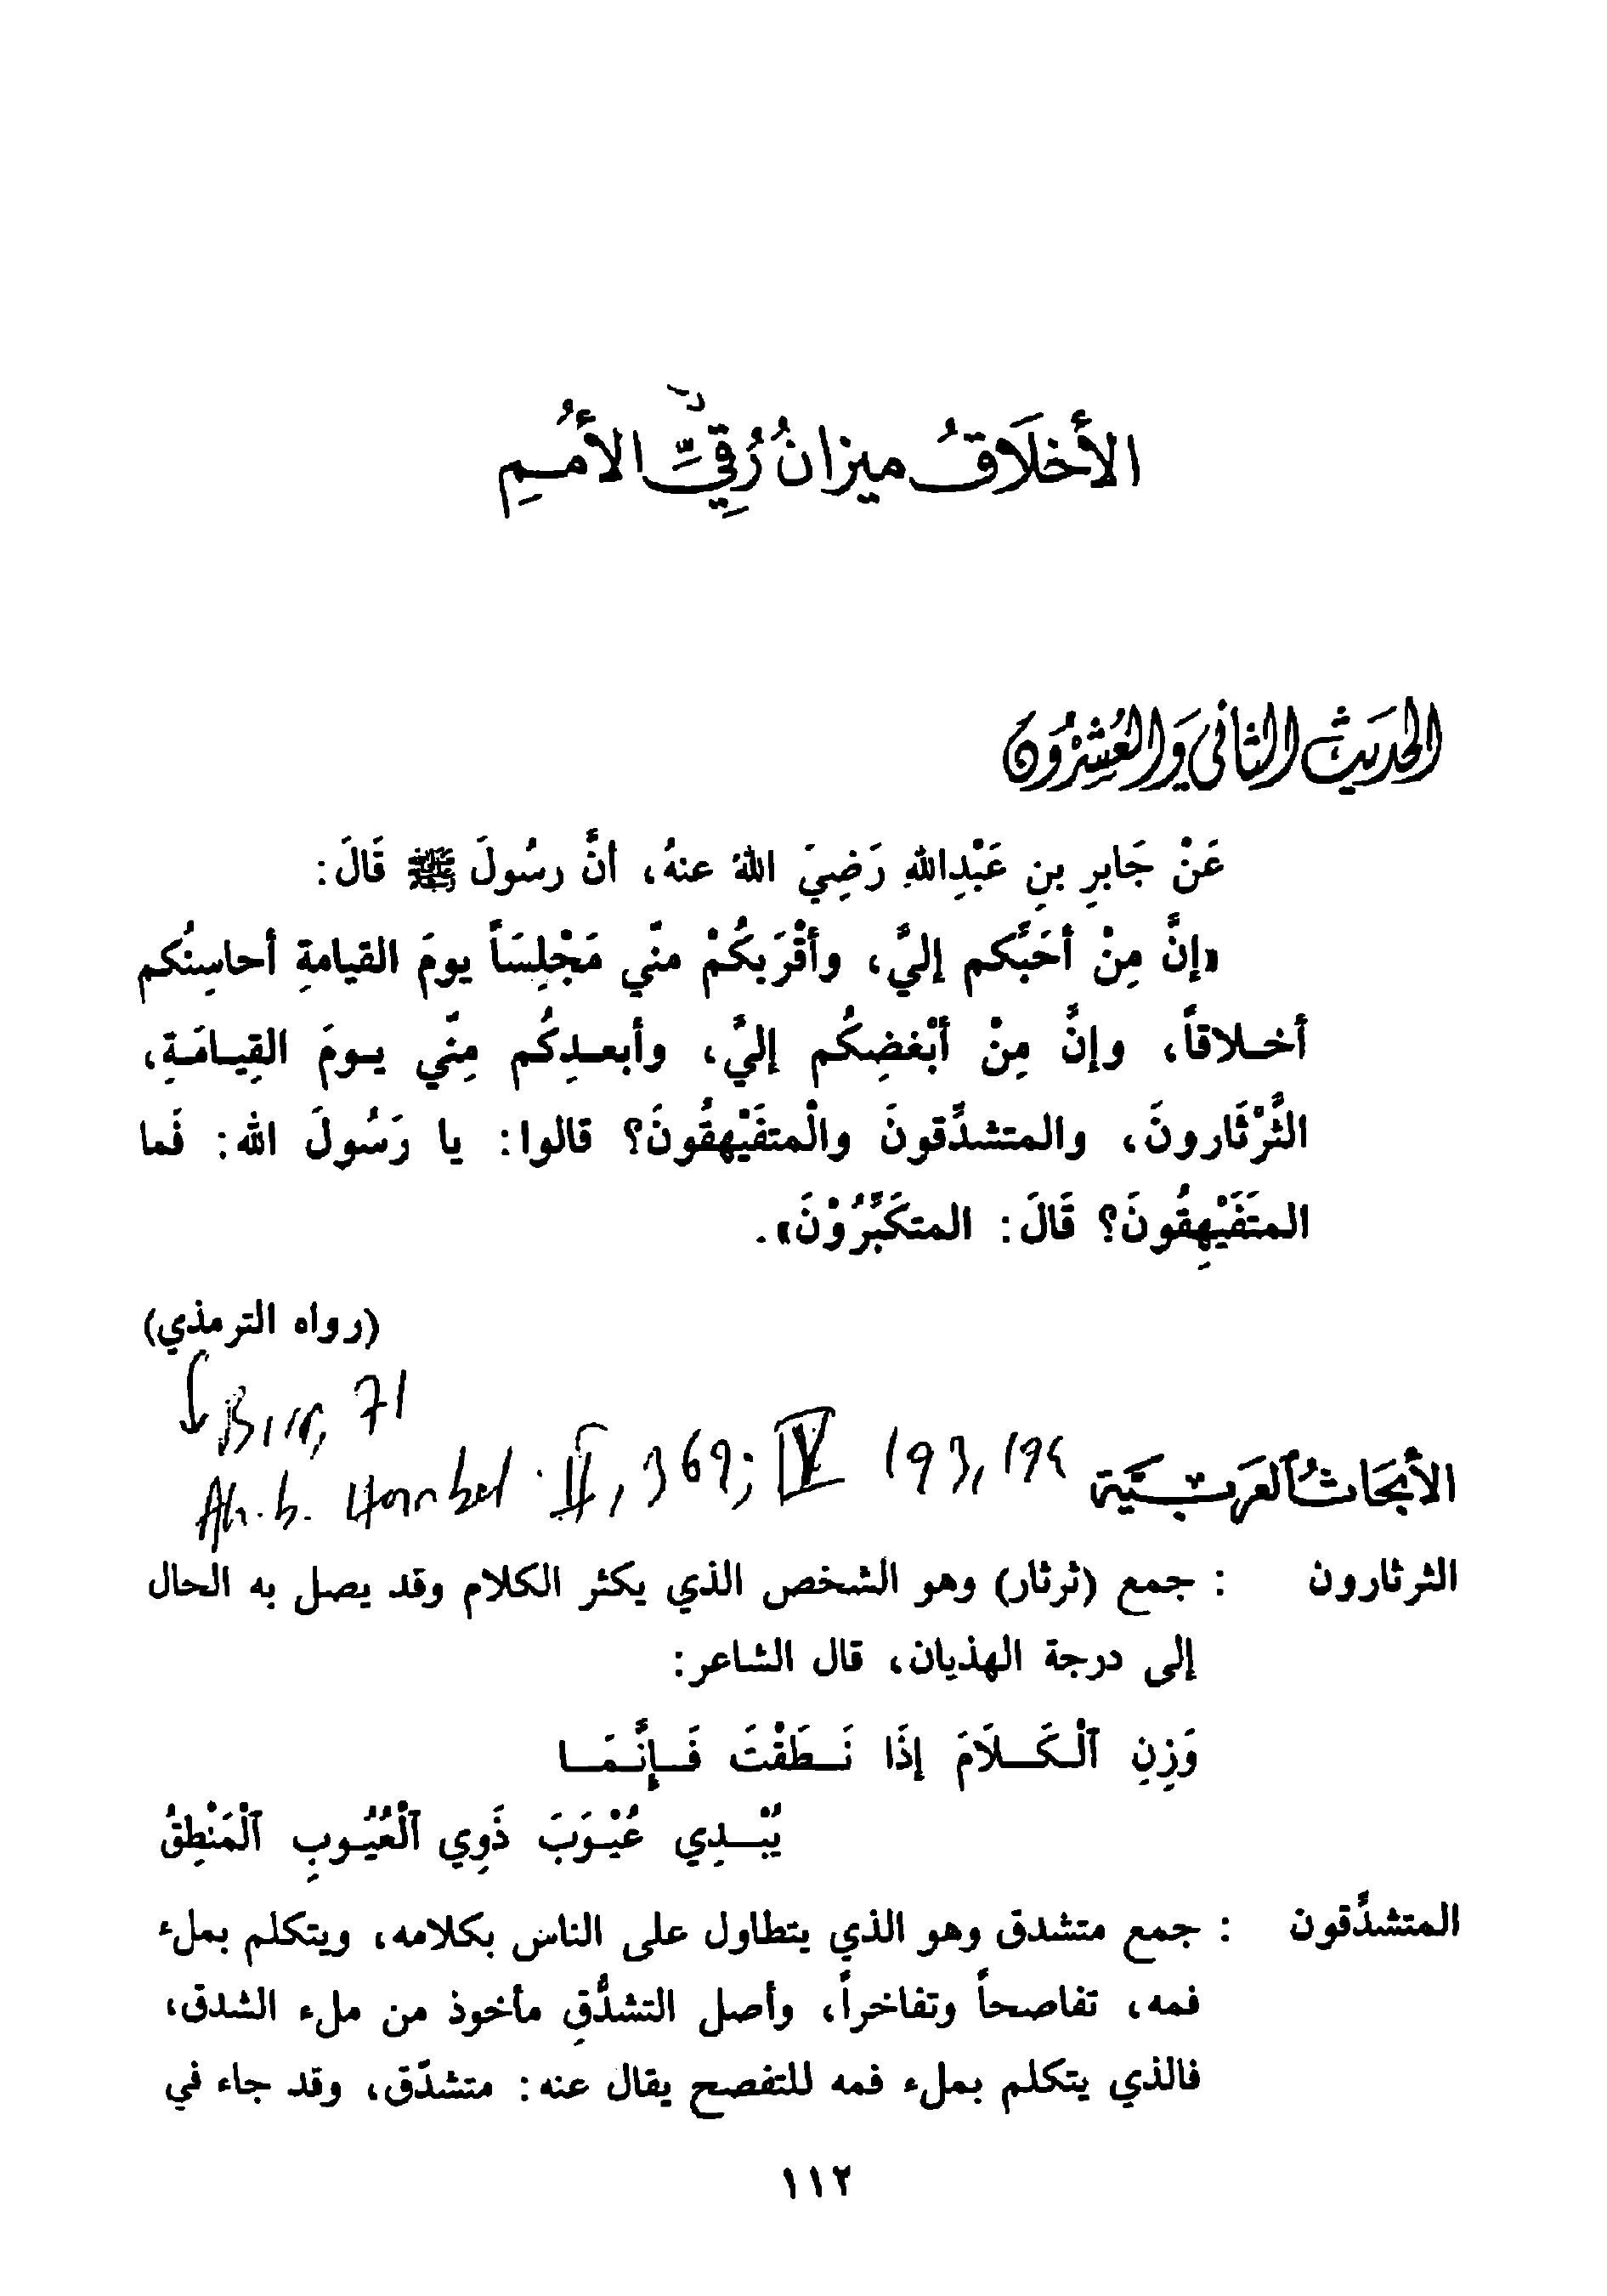 الأخلَاقُ ميزانُ رُقِيِّ الأمُمِ
الحَديثُ الثاني وَالعُشرُونَ
عَنْ جَابرِ بنِ عَبْدِاللهِ رَضِيَ اللهُ عنهُ، أنَّ رسُولَ ﷺ قَالَ:
«إنَّ مِنْ أحَبِّكم إليَّ، وأقْرَبكُمْ منّي مَجْلِسَاً يومَ القيامةِ أحاسِنُكم
أخـلاقاً، وإنَّ مِنْ أبْغضِكُم إليَّ، وأبعـدِكُم مِنّي يـومَ القِيـامَـةِ،
الثَّرْثَارونَ، والمتشدِّقونَ والْمتفَيْهقُونَ؟ قالوا: يا رَسُولَ الله: فَما
المتَفَيْهِقُونَ؟ قَالَ: المتكَبِّرُوْنَ».
(رواه الترمذي)
Birr, 71
Ah. b. Hanbel II, 369; IV 193, 194
الأبحَاثُ العَربـيَّة
الثرثارون : جمع (ثرثار) وهو الشخص الذي يكثر الكلام وقد يصل به الحال
إلى درجة الهذيان، قال الشاعر:
وَزِنِ ٱلْـكَـــلاَمَ إذَا نَــطَقْتَ فَــإنَّــمَـــا
يُبْـــدِي عُيْـوَبَ ذَوِي ٱلْعُيُـوبِ ٱلْمَنْطِقُ
المتشدِّقون : جمع متشدق وهو الذي يتطاول على الناس بكلامه، ويتكلم بملء
فمه، تفاصحاً وتفاخراً، وأصل التشدُّقِ مأخوذ من ملء الشدق،
فالذي يتكلم بملء فمه للتفصح يقال عنه: متشدّق، وقد جاء في
١١٢